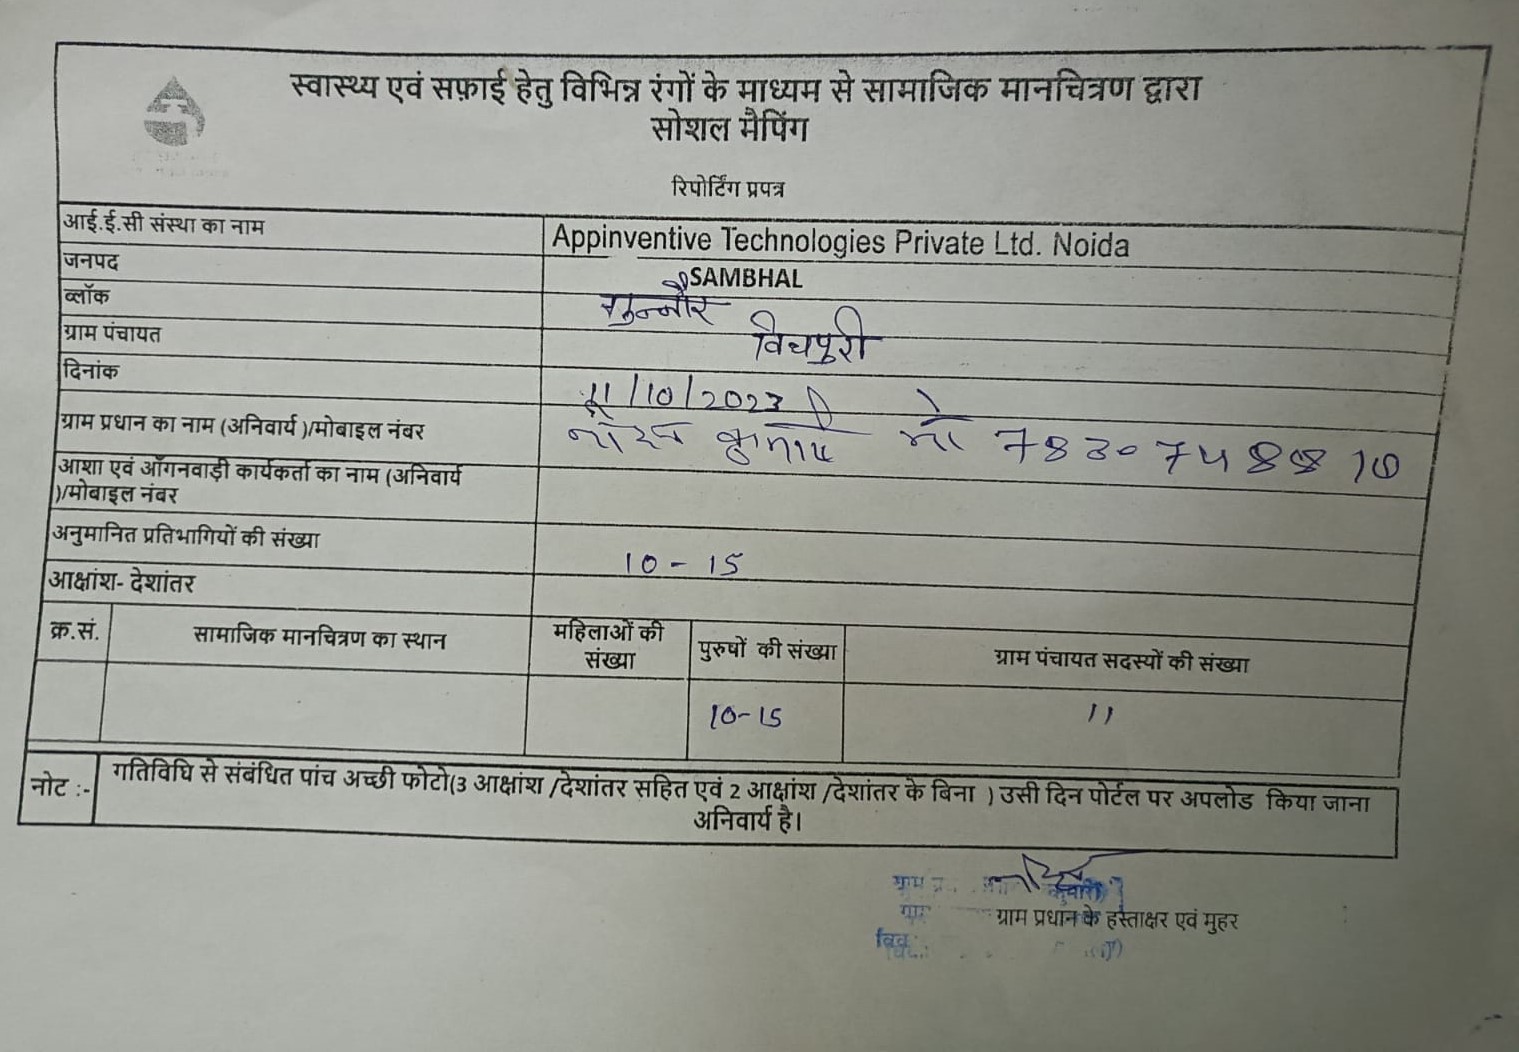 स्वास्थ्य एवं सफ़ाई हेतु विभिन्न रंगों के माध्यम से सामाजिक मानचित्रण द्वारा
सोशल मैपिंग
रिपोर्टिंग प्रपत्र
आई.ई.सी संस्था का नाम Appinventive Technologies Private Ltd. Noida
जनपद SAMBHAL
ब्लॉक गुन्नौर
ग्राम पंचायत विचपुरी
दिनांक 11/10/2023
ग्राम प्रधान का नाम (अनिवार्य )/मोबाइल नंबर कुमारी मो
आशा एवं आँगनवाड़ी कार्यकर्ता का नाम (अनिवार्य
)/मोबाइल नंबर
अनुमानित प्रतिभागियों की संख्या 10 - 15
आक्षांश- देशांतर
क्र.सं. सामाजिक मानचित्रण का स्थान महिलाओं की संख्या पुरुषों की संख्या ग्राम पंचायत सदस्यों की संख्या
10-15 11
नोट :- गतिविधि से संबंधित पांच अच्छी फोटो(3 आक्षांश /देशांतर सहित एवं 2 आक्षांश /देशांतर के बिना ) उसी दिन पोर्टल पर अपलोड किया जाना
अनिवार्य है।
ग्राम प्रधान के हस्ताक्षर एवं मुहर